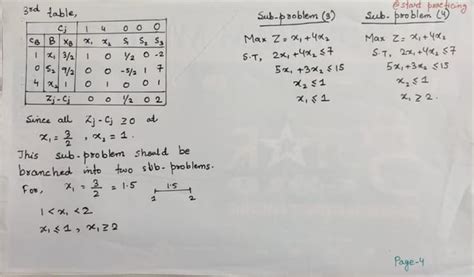 @start practicing
3rd table,
Cj 1 4 0 0 0
CB B XB x₁ x₂ S₁ S₂ S₃
1 x₁ 3/2 1 0 1/2 0 -2
0 S₂ 9/2 0 0 -5/2 1 7
4 x₂ 1 0 1 0 0 1
Zj-Cj 0 0 1/2 0 2
Since all Zj-Cj ≥ 0 at
x₁ = 3/2, x₂ = 1.
This sub-problem should be
branched into two sbb-problems.
For, x₁ = 3/2 = 1.5
1.5
1 2
1 < x₁ < 2
x₁ ≤ 1, x₁ ≥ 2
Sub-problem (3)
Max Z = x₁+4x₂
S.T, 2x₁+4x₂ ≤ 7
5x₁+3x₂ ≤ 15
x₂ ≤ 1
x₁ ≤ 1
Sub-problem (4)
Max Z = x₁+4x₂
S.T, 2x₁+4x₂ ≤ 7
5x₁+3x₂ ≤ 15
x₂ ≤ 1
x₁ ≥ 2.
Page-4